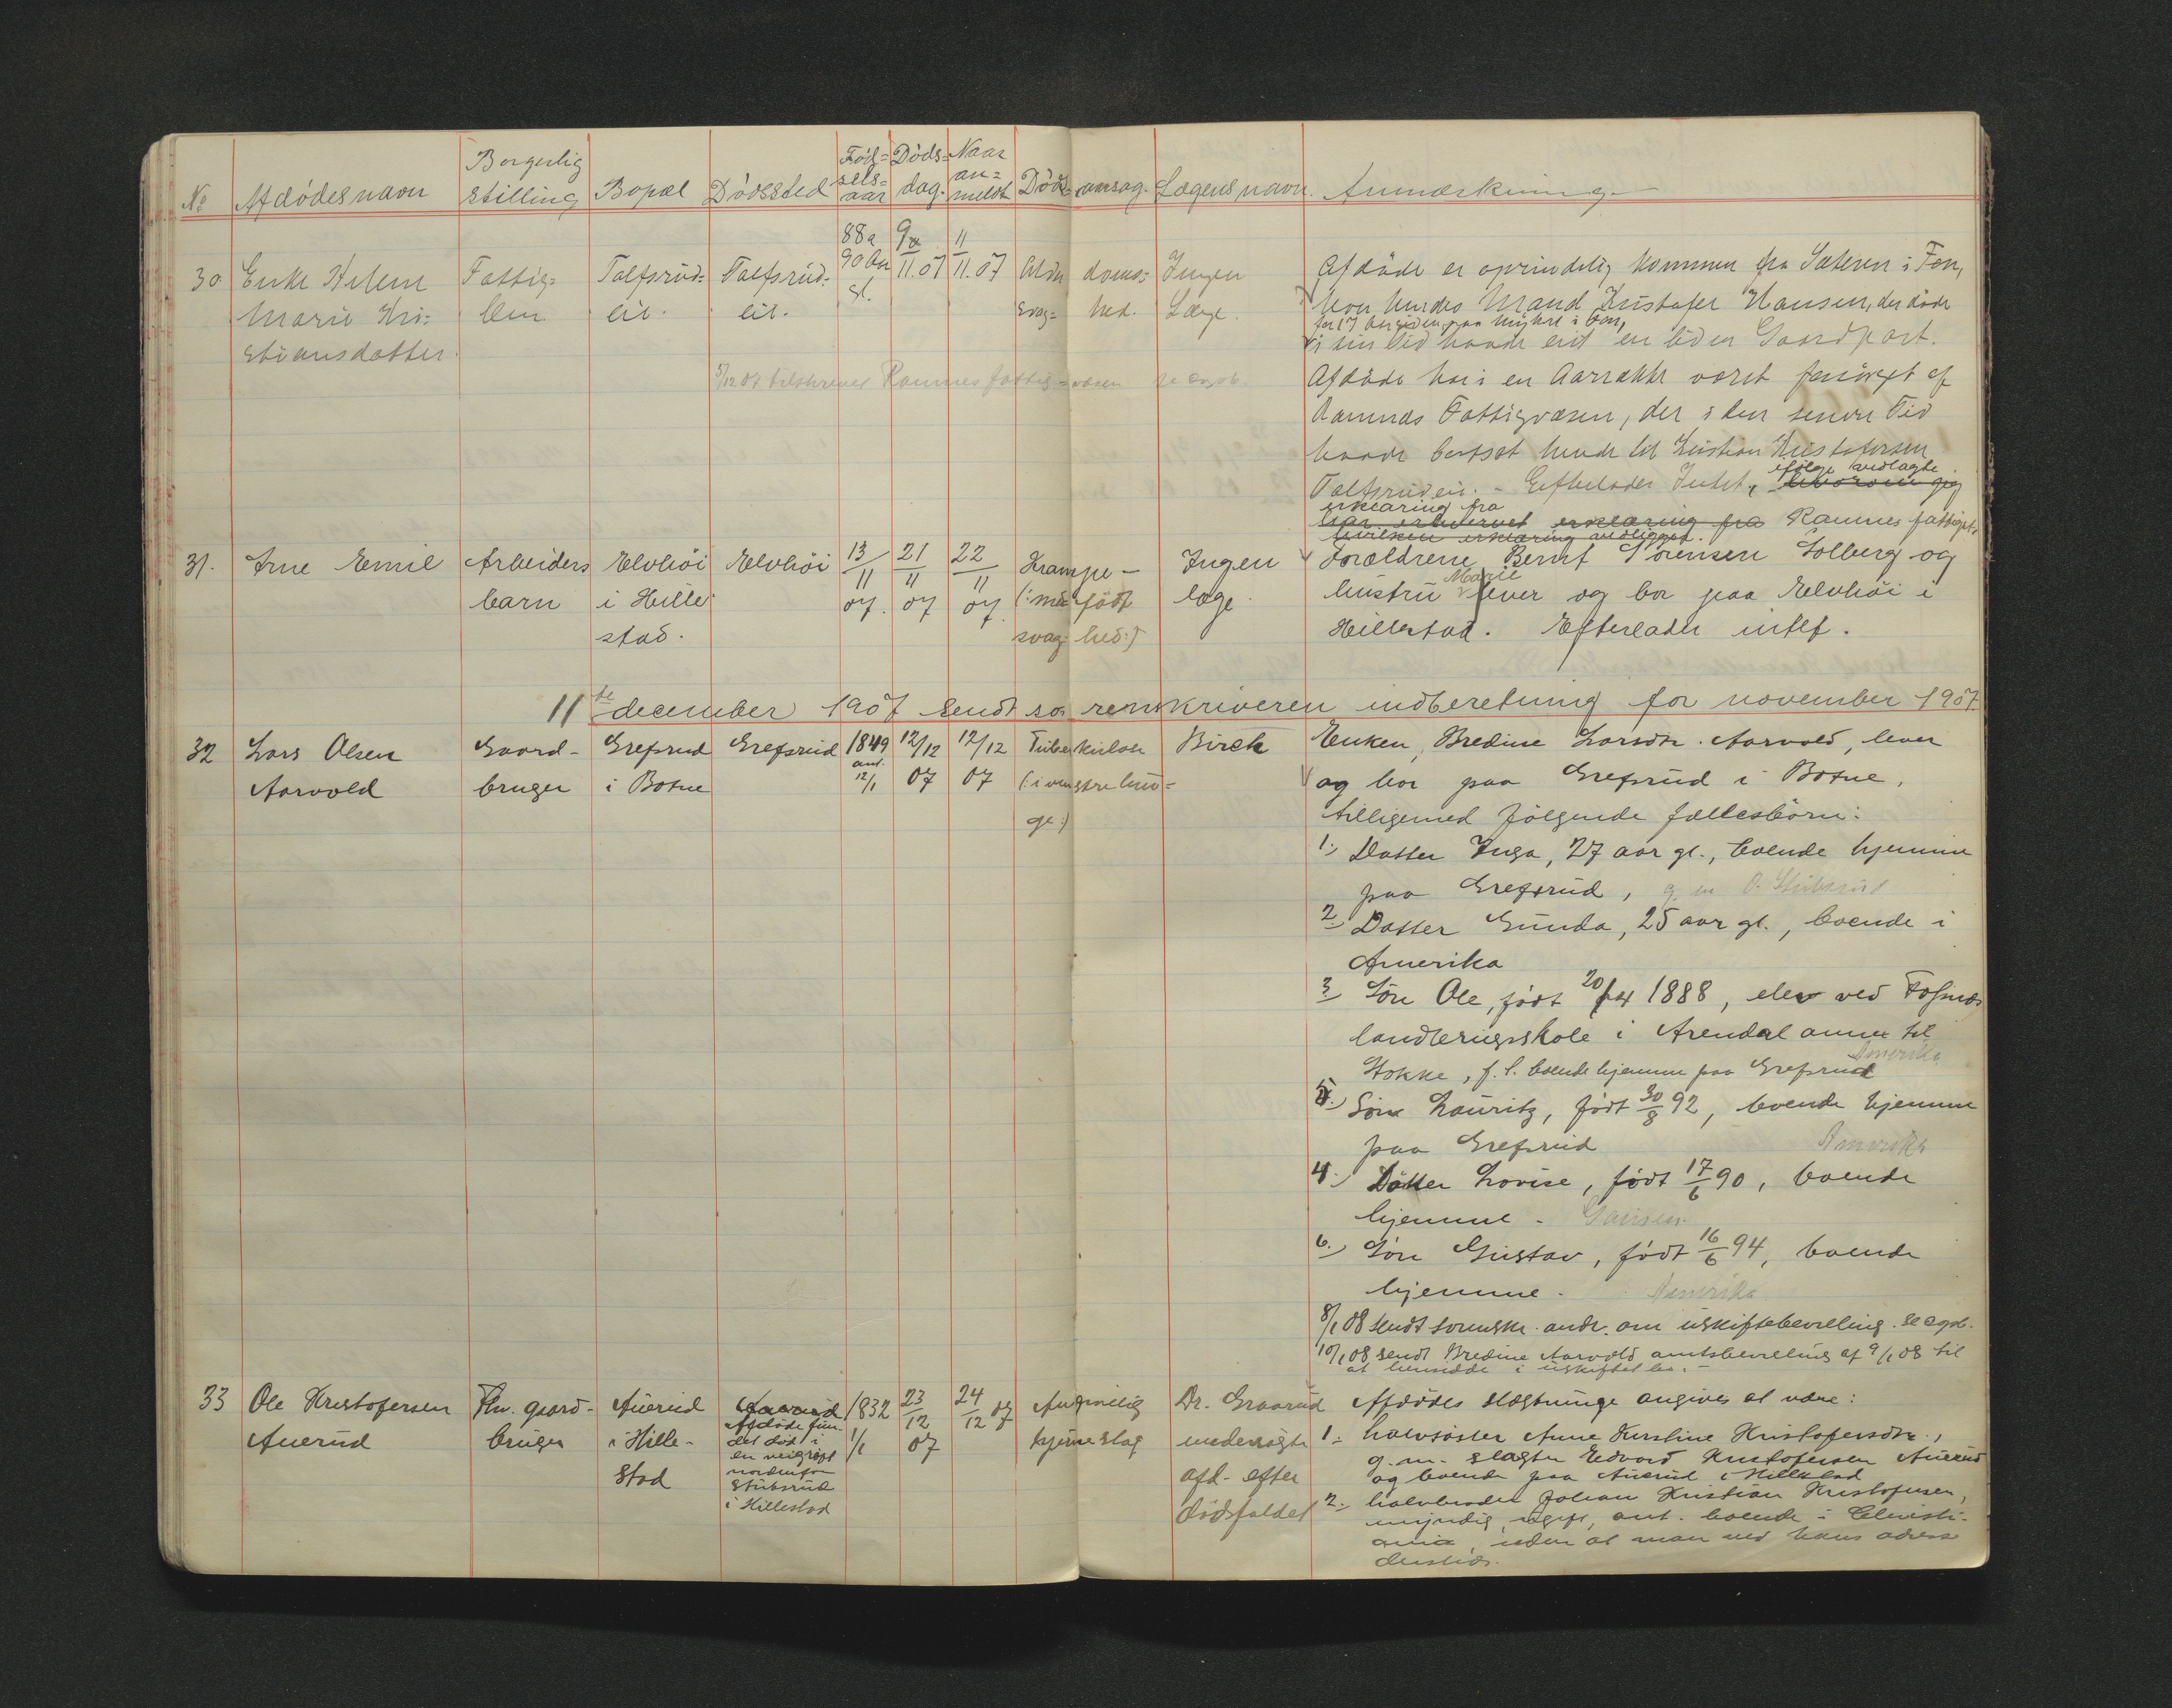 No Afdødes navn Borgerlig stilling Bopæl Dødssted Fød=sels=aar Døds=dag. Naar an=meldt Døds=aarsag. Lægens navn. Anmærkning.
30 Enke Helene Marie Kri=stiansdatter. Fattig=lem Tolfsrud=eie. Tolfsrud=eie. 88 a 90 Aar gl. 9 11.07 11 11.07 Alder doms=svag=hed. Ingen Læge.
Afdøde er oprindelig kommen fra Sæteren i Fon,
hvor hendes Mand Kristofer Hansen, der døde
for 17 Aar siden paa i Fon,
i sin Tid havde eiet en liden Gaardpart.
Afdøde har i en Aarrække været forsørget af
Ramnæs Fattigvæsen, der i den senere Tid
havde bortsat hende til Kristian Kristofersen
Tolfsrudeie. - Efterlader Intet, ifølge vedlagte
erklæring fra
har erhvervet erklæring fra Ramnes fattigv.
hvilken erklæring vedligget.
5/12 07 tilskrevet Ramnes fattig=væsen se copb.
31. Arne Emil Arbeiders barn Elvhøi i Hille stad. Elvhøi 13/11 07. 21/11 07 22/11 07. Krampe - (: medfødt svag hed :) Ingen læge.
Forældrene Bernt Sørensen Solberg og
hustru Marie lever og bor paa Elvhøi i
Hillestad. Efterlader intet.
11te december 1907 sendt sorenskriveren indberetning for november 1907
32 Lars Olsen Aarvold Gaard-bruger Grefsrud i Botne Grefsrud 1849 ant. 12/1 12/12 07 12/12 07 Tuberkulose (: i venstre lun=ge :) Birch
Enken, Bredine Larsdtr. Aarvold, lever
og bor paa Grefsrud i Botne,
tilligemed følgende fællesbørn:
1.) Datter Inga, 27 aar gl., boende hjemme
paa Grefsrud, g. m. O. Stubsrud
2.) Datter Gunda, 25 aar gl., boende i
Amerika
3.) Søn Ole, født 20/ 1888, elev ved Fosnæs
landbrugsskole i Arendal annex til
Stokke, f. t. boende hjemme paa Grefsrud Amerika
5.) Søn Lauritz, født 30/8 92, boende hjemme
paa Grefsrud Amerika
4.) Datter Lovise, født 17/6 90, boende
hjemme.
6.) Søn Gustav, født 16/6 94, boende
hjemme. Amerika
8/1 08 sendt sorenskr. andr. om uskiftebevilling. se copb.
10/1 08 sendt Bredine Aarvold amtsbevilling af 9/1 08 til
at hensidde i uskiftet bo. -
33 Ole Kristofersen Auerud Fhv. gaard-bruger Auerud i Hille-stad Auerud Afdøde fun-det død i en veigrøft nordenfor Stubsrud i Hillestad 1832 1/1 23/12 07 24/12 07 Antagelig hjerneslag Dr. Graarud undersøgte afd. efter dødsfaldet
Afdødes slægtninge angives at være:
1.- halvsøster Anne Kirstine Kristofersdtr.,
g. m. slagter Edvard Kristofersen Auerud
og boende paa Auerud i Hillestad
2.- halvbroder Johan Kristian Kristofersen,
myndig, ugift, ant. boende i Christi-
ania, uden at man ved hans adresse
dersteds.